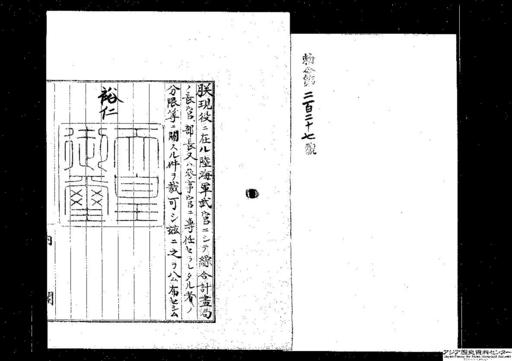 勅令第二百二十七號
朕現役ニ在ル陸海軍武官ニシテ綜合計畫局
ノ長官、部長又ハ參事官ニ專任セラレタル者ノ
分限等ニ關スル件ヲ裁可シ玆ニ之ヲ公布セシム
裕仁
天皇御璽
内閣
アジア歴史資料センター